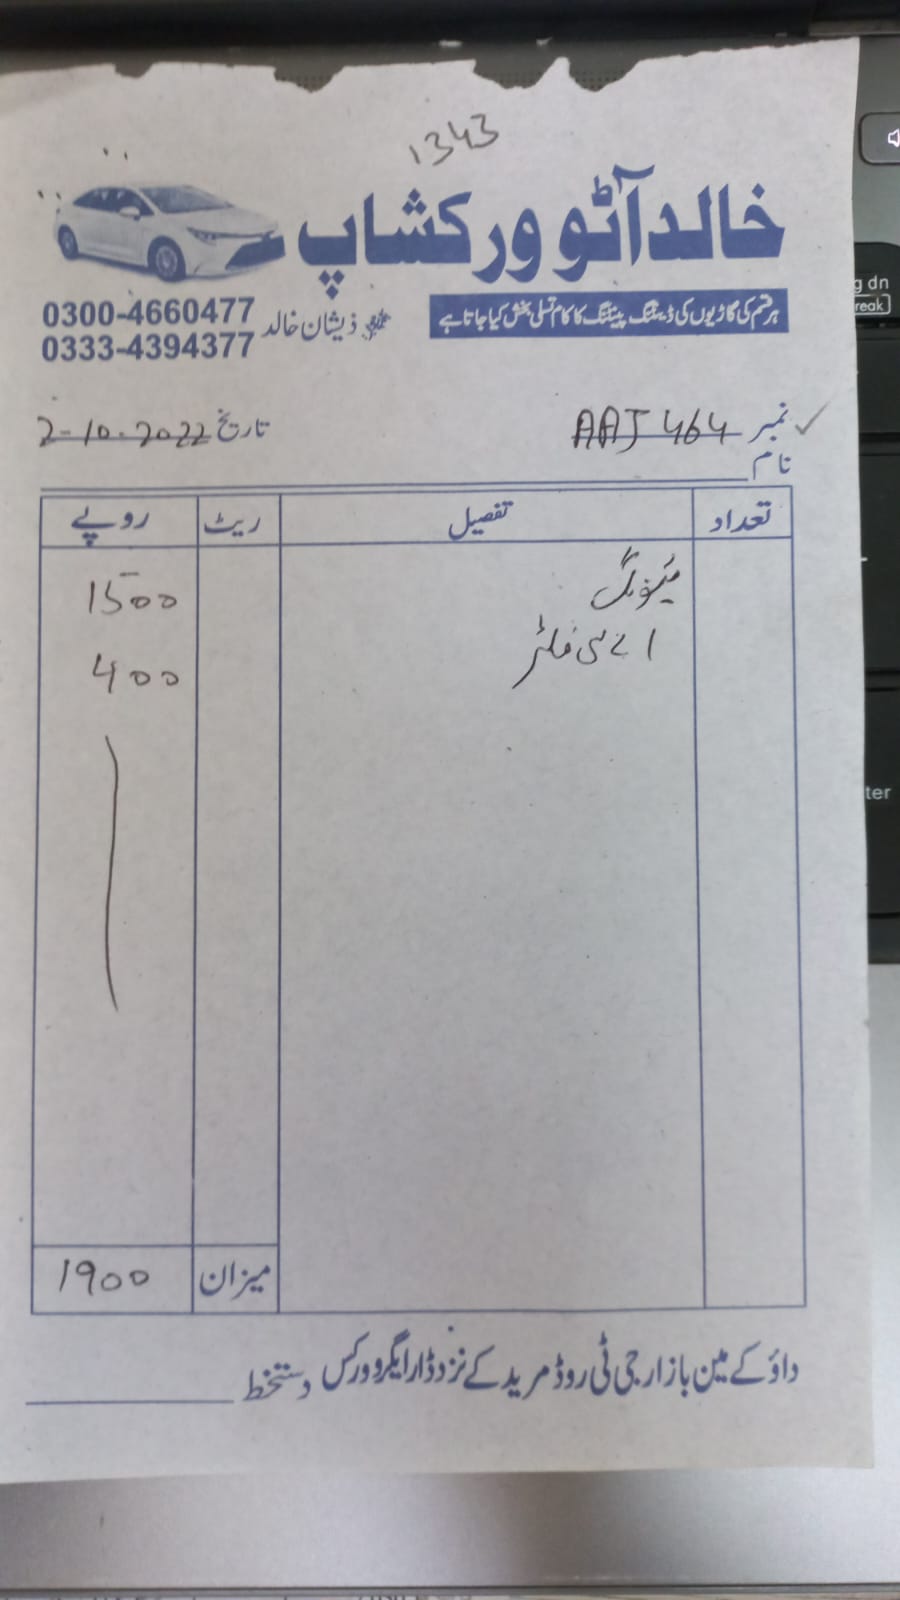 1343
خالد آٹو ورکشاپ
ہر قسم کی گاڑیوں کی ڈینٹنگ پینٹنگ کا کام تسلی بخش کیا جاتا ہے
ذیشان خالد
0300-4660477
0333-4394377
نمبر AAJ 464 تاریخ 2-10-2022
نام
تعداد تفصیل ریٹ روپے
ٹیوننگ 1500
اے سی فلٹر 400
میزان 1900
داؤکے مین بازار جی ٹی روڈ مریدکے نزد ڈار ایگرو ورکس دستخط
g dn
reak
ter